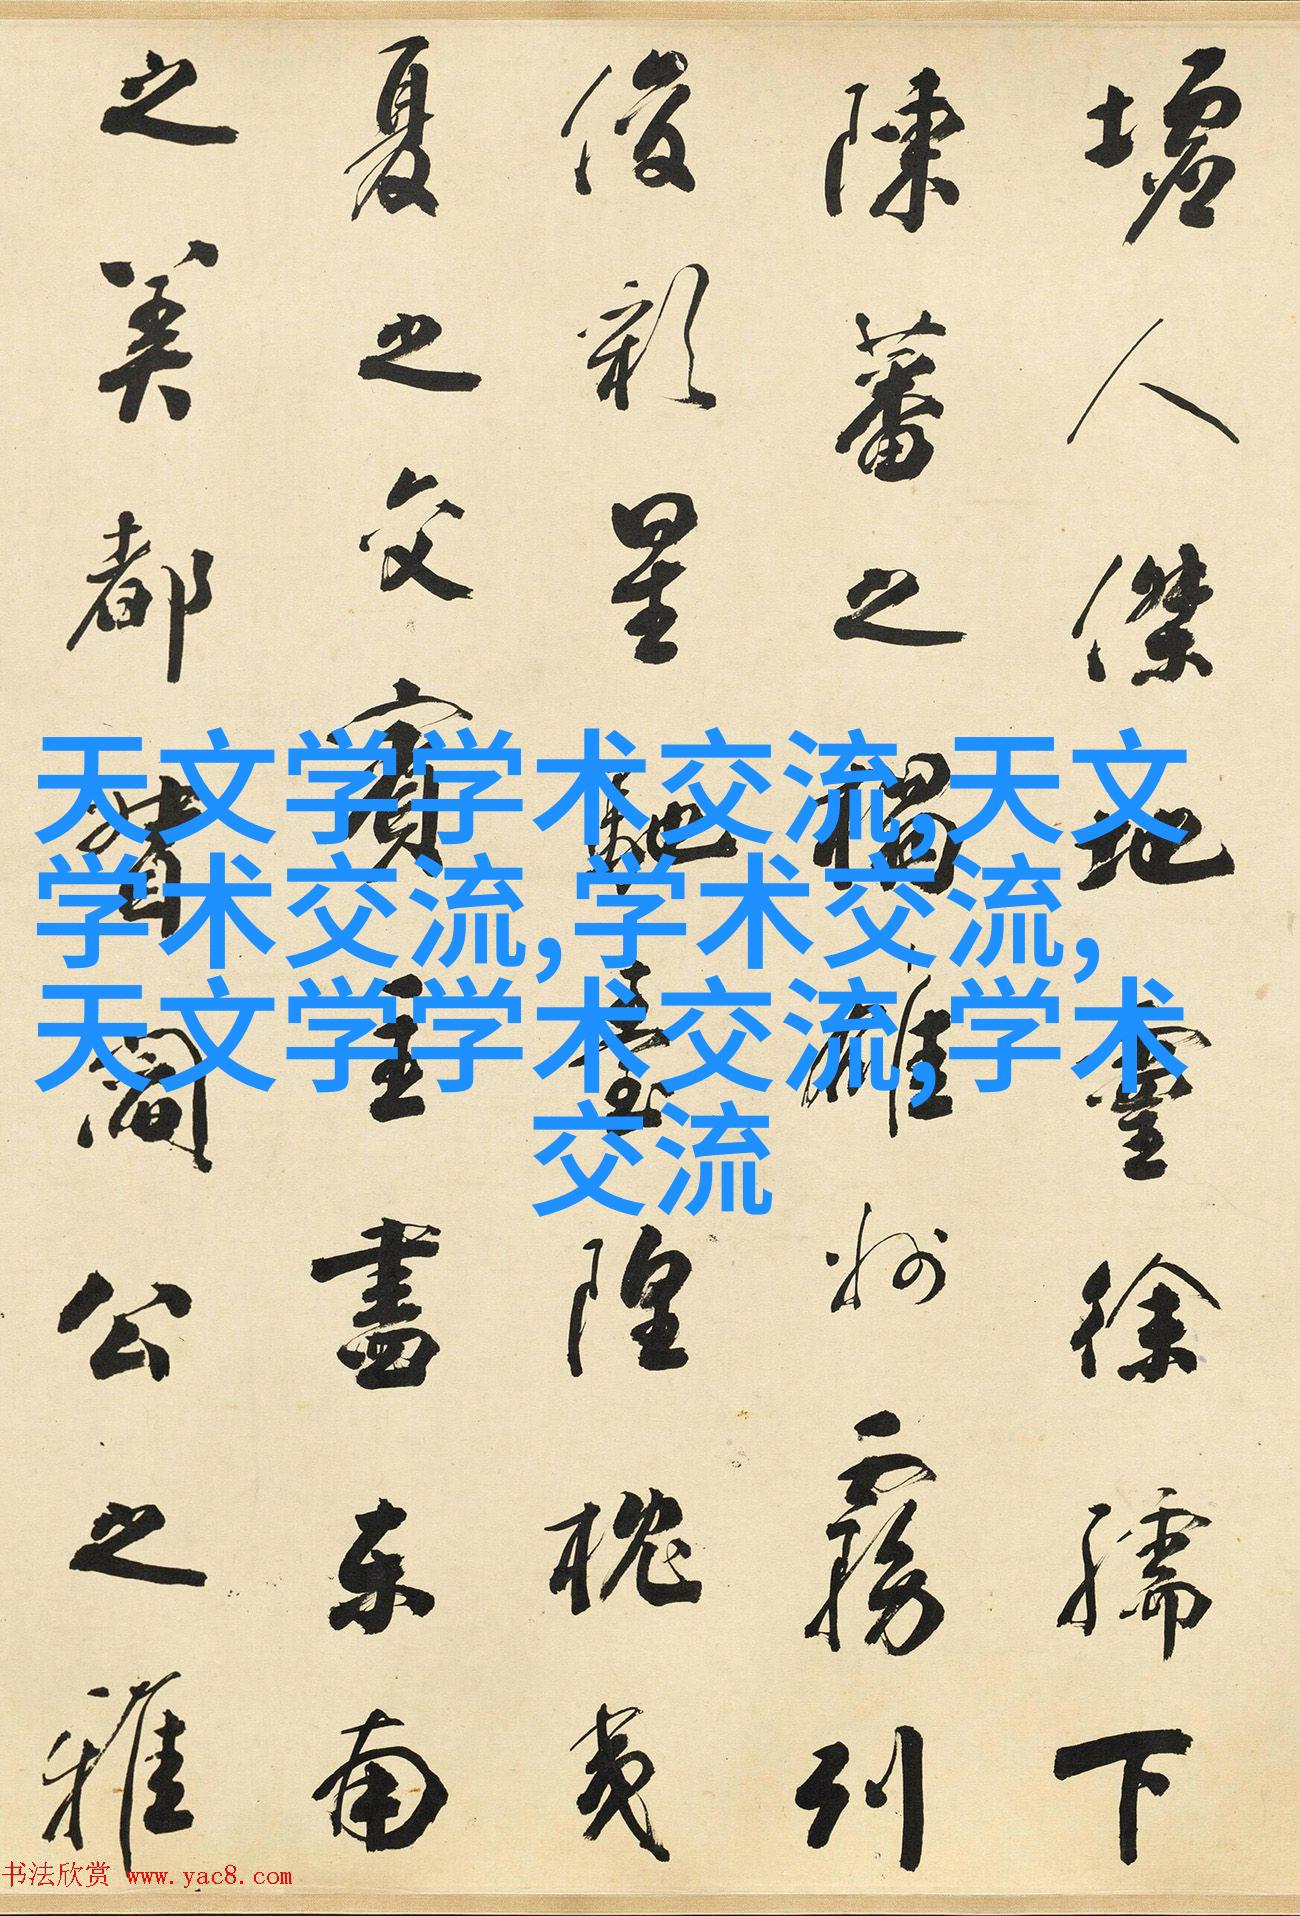 墟人傑地靈徐孺下
陳蕃之榻雄州霧列
俊彩星馳臺隍枕夷
夏之交賓主盡東南
之美都督閻公之雅
天文学学术交流,天文
学术交流,学术交流,
天文学学术交流,学术
交流
书法欣赏 www.yac8.com